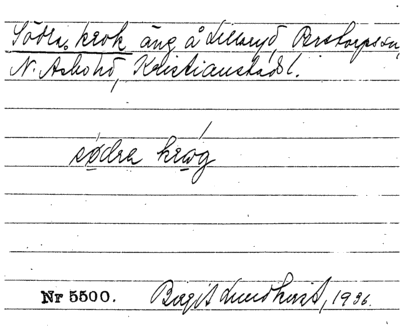 Södra krok äng å Lillaryd, Perstorps sn,
N. Åsbo hd, Kristianstads l.
sødra kråg
Nr 5500. Birgit Lundkvist, 1936.